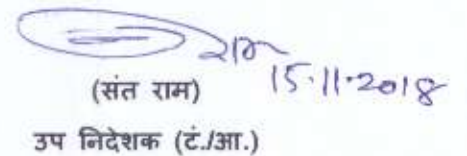 राम
15.11.2018
(संत राम)
उप निदेशक (टं./आ.)